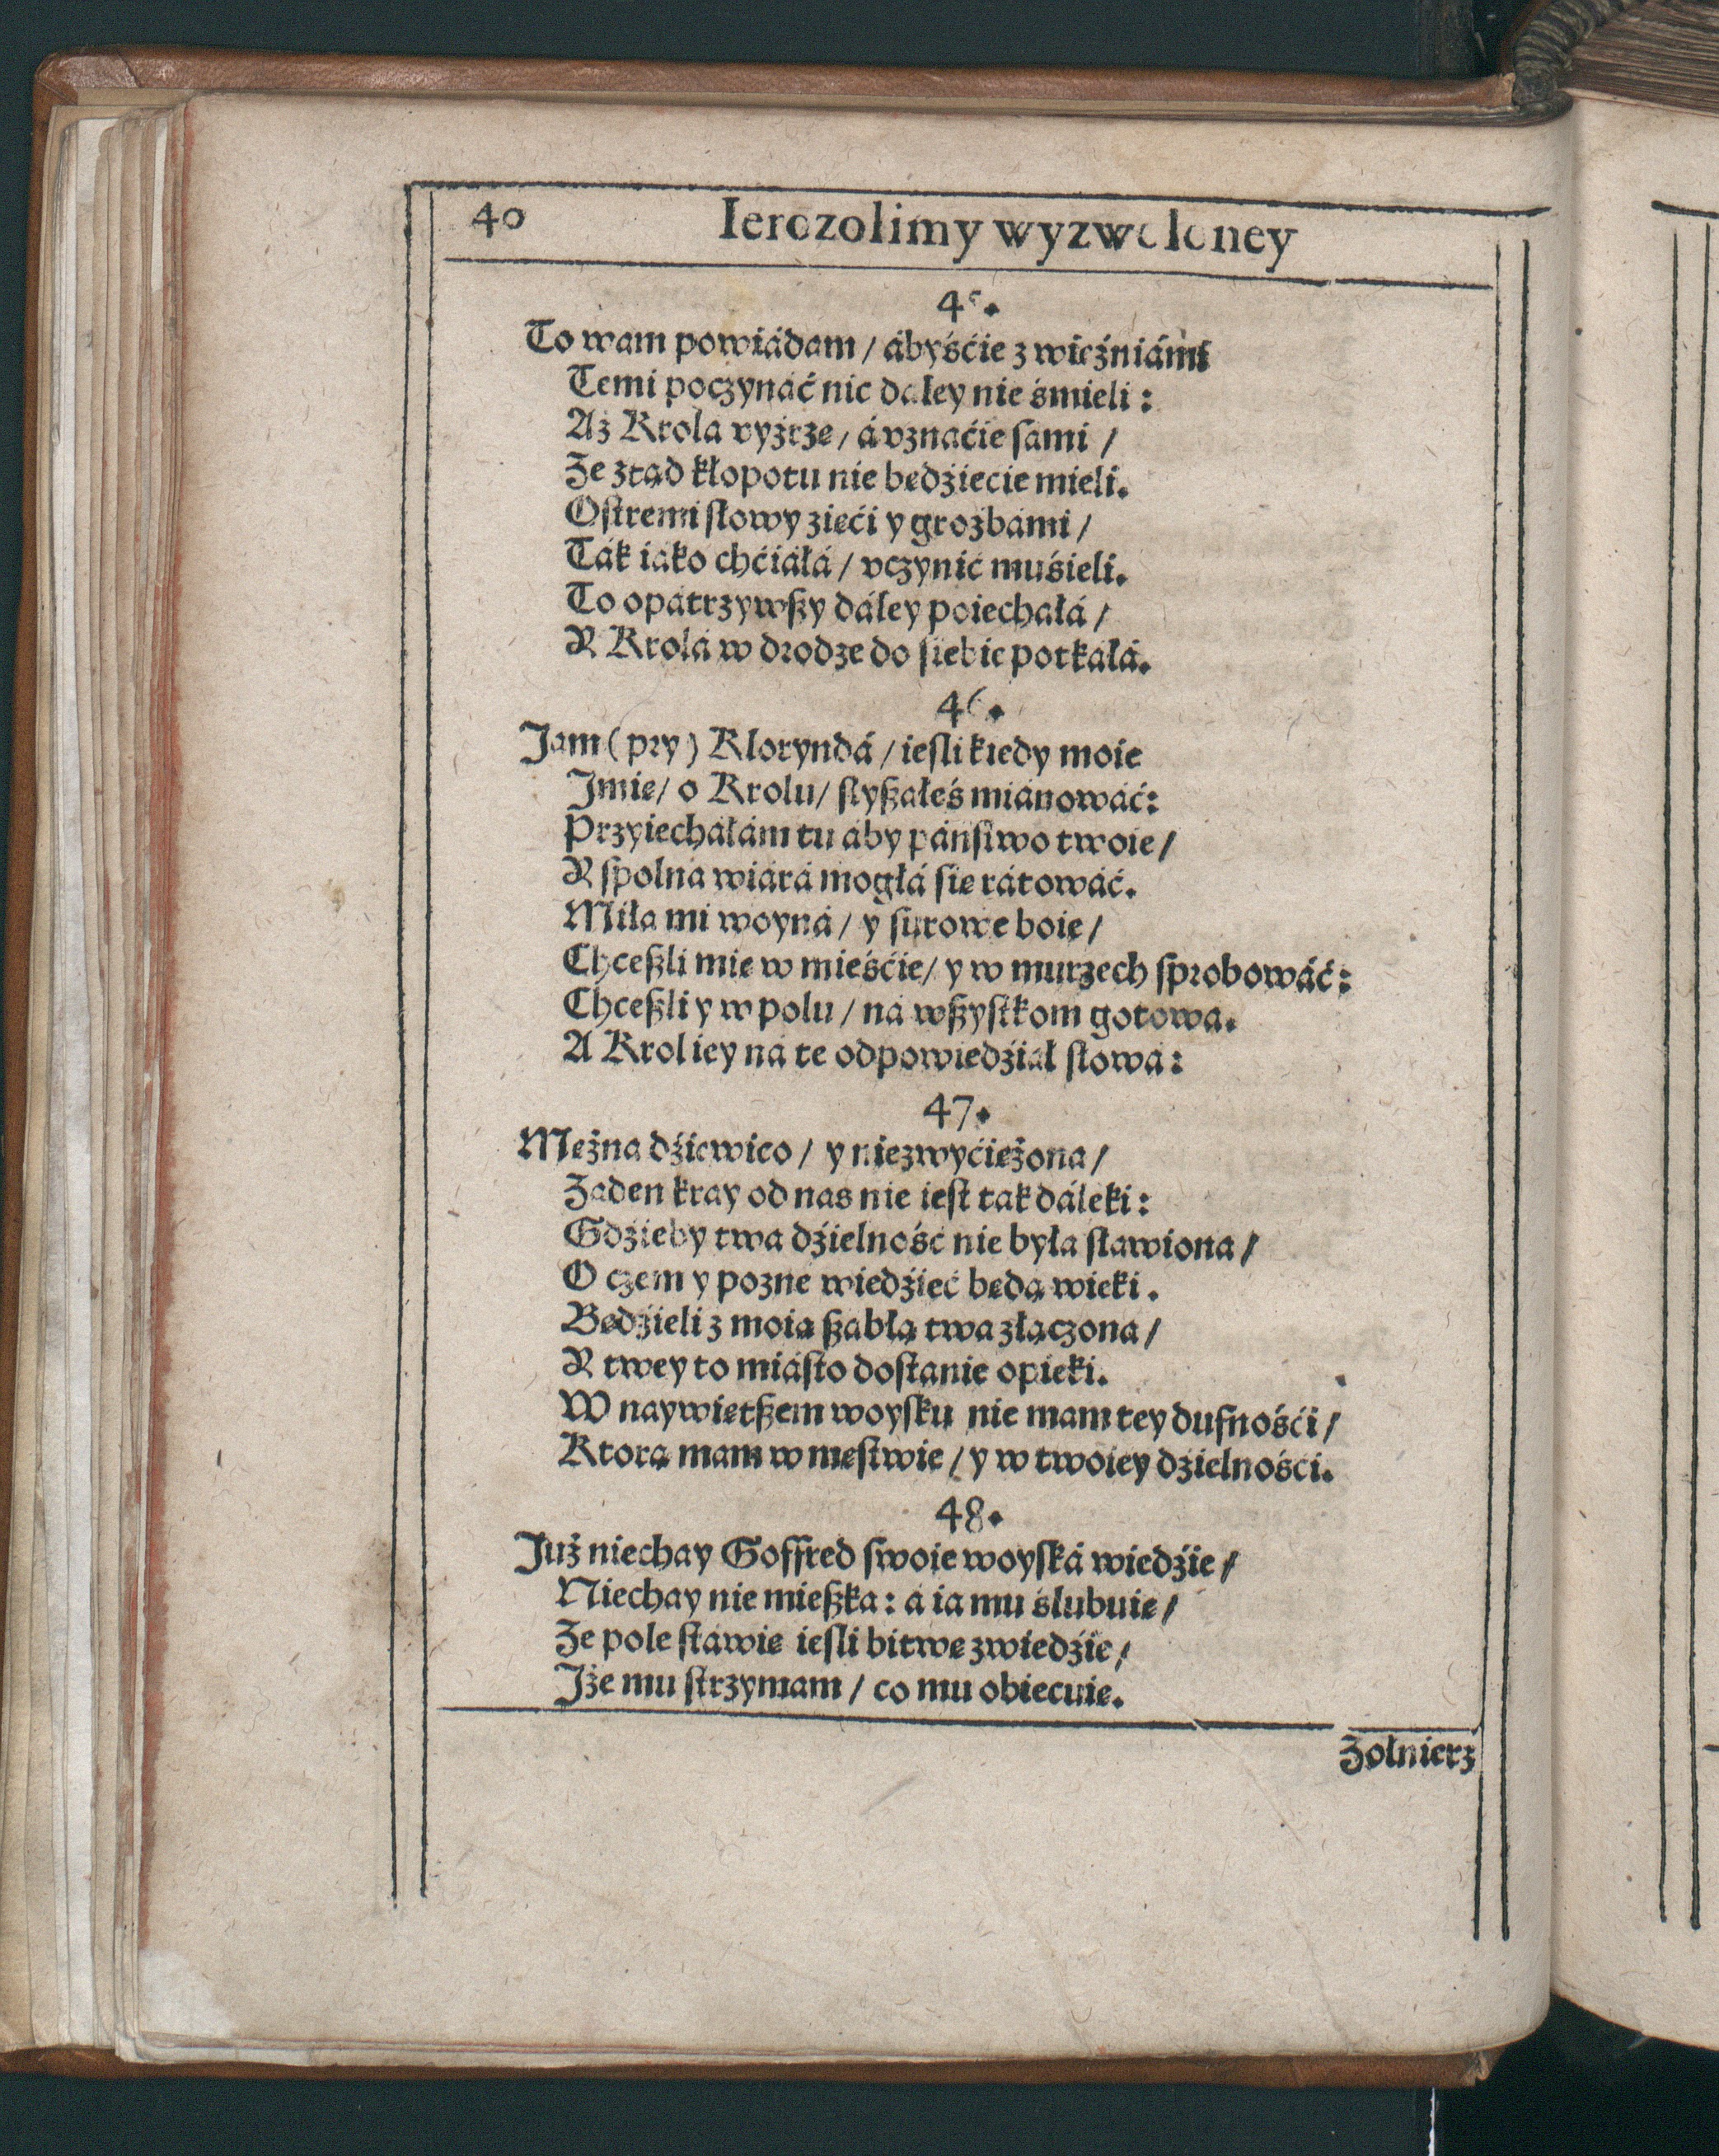 40 Ierozolimy wyzwoloney
45.
To wam powiádam / ábyśćie z więźniámi
Temi poczynáć nic daley nie śmieli:
Aż Krola vyźrzę / á vznaćie sámi /
Że ztąd kłopotu nie będźiecie mieli.
Ostremi słowy zięći y groźbámi /
Ták iáko chćiáłá / vczynić muśieli.
To opátrzywszy dáley poiechałá /
Y Krolá w drodze do siebie potkałá.
46.
Jam (pry) Kloryndá / iesli kiedy moie
Jmię / o Krolu / słyszałeś miánowáć:
Przyiechałám tu áby páństwo twoie /
Y spolna wiárá mogłá się rátowáć.
Miła mi woyná / y surowe boie /
Chceszli mię w mieśćie / y w murzech sprobowáć:
Chceszli y w polu / ná wszystkom gotowa.
A Krol iey na te odpowiedźiał słowá:
47.
Mężna dźiewico / y niezwyćiężona /
Żaden kray od nas nie iest tak dáleki:
Gdźieby twa dźielność nie była sławiona /
O czem y pozne wiedźieć będą wieki.
Będźieli z moią szablą twa złączona /
Y twey to miásto dostanie opieki.
W naywiętszem woysku nie mam tey dufnośći /
Ktorą mam w męstwie / y w twoiey dźielnośći.
48.
Już niechay Goffred swoie woyská wiedźie /
Niechay nie mieszka: á ia mu ślubuię /
Że pole stáwię iesli bitwę zwiedźie /
Jże mu strzymam / co mu obiecuię.
Żołnierz